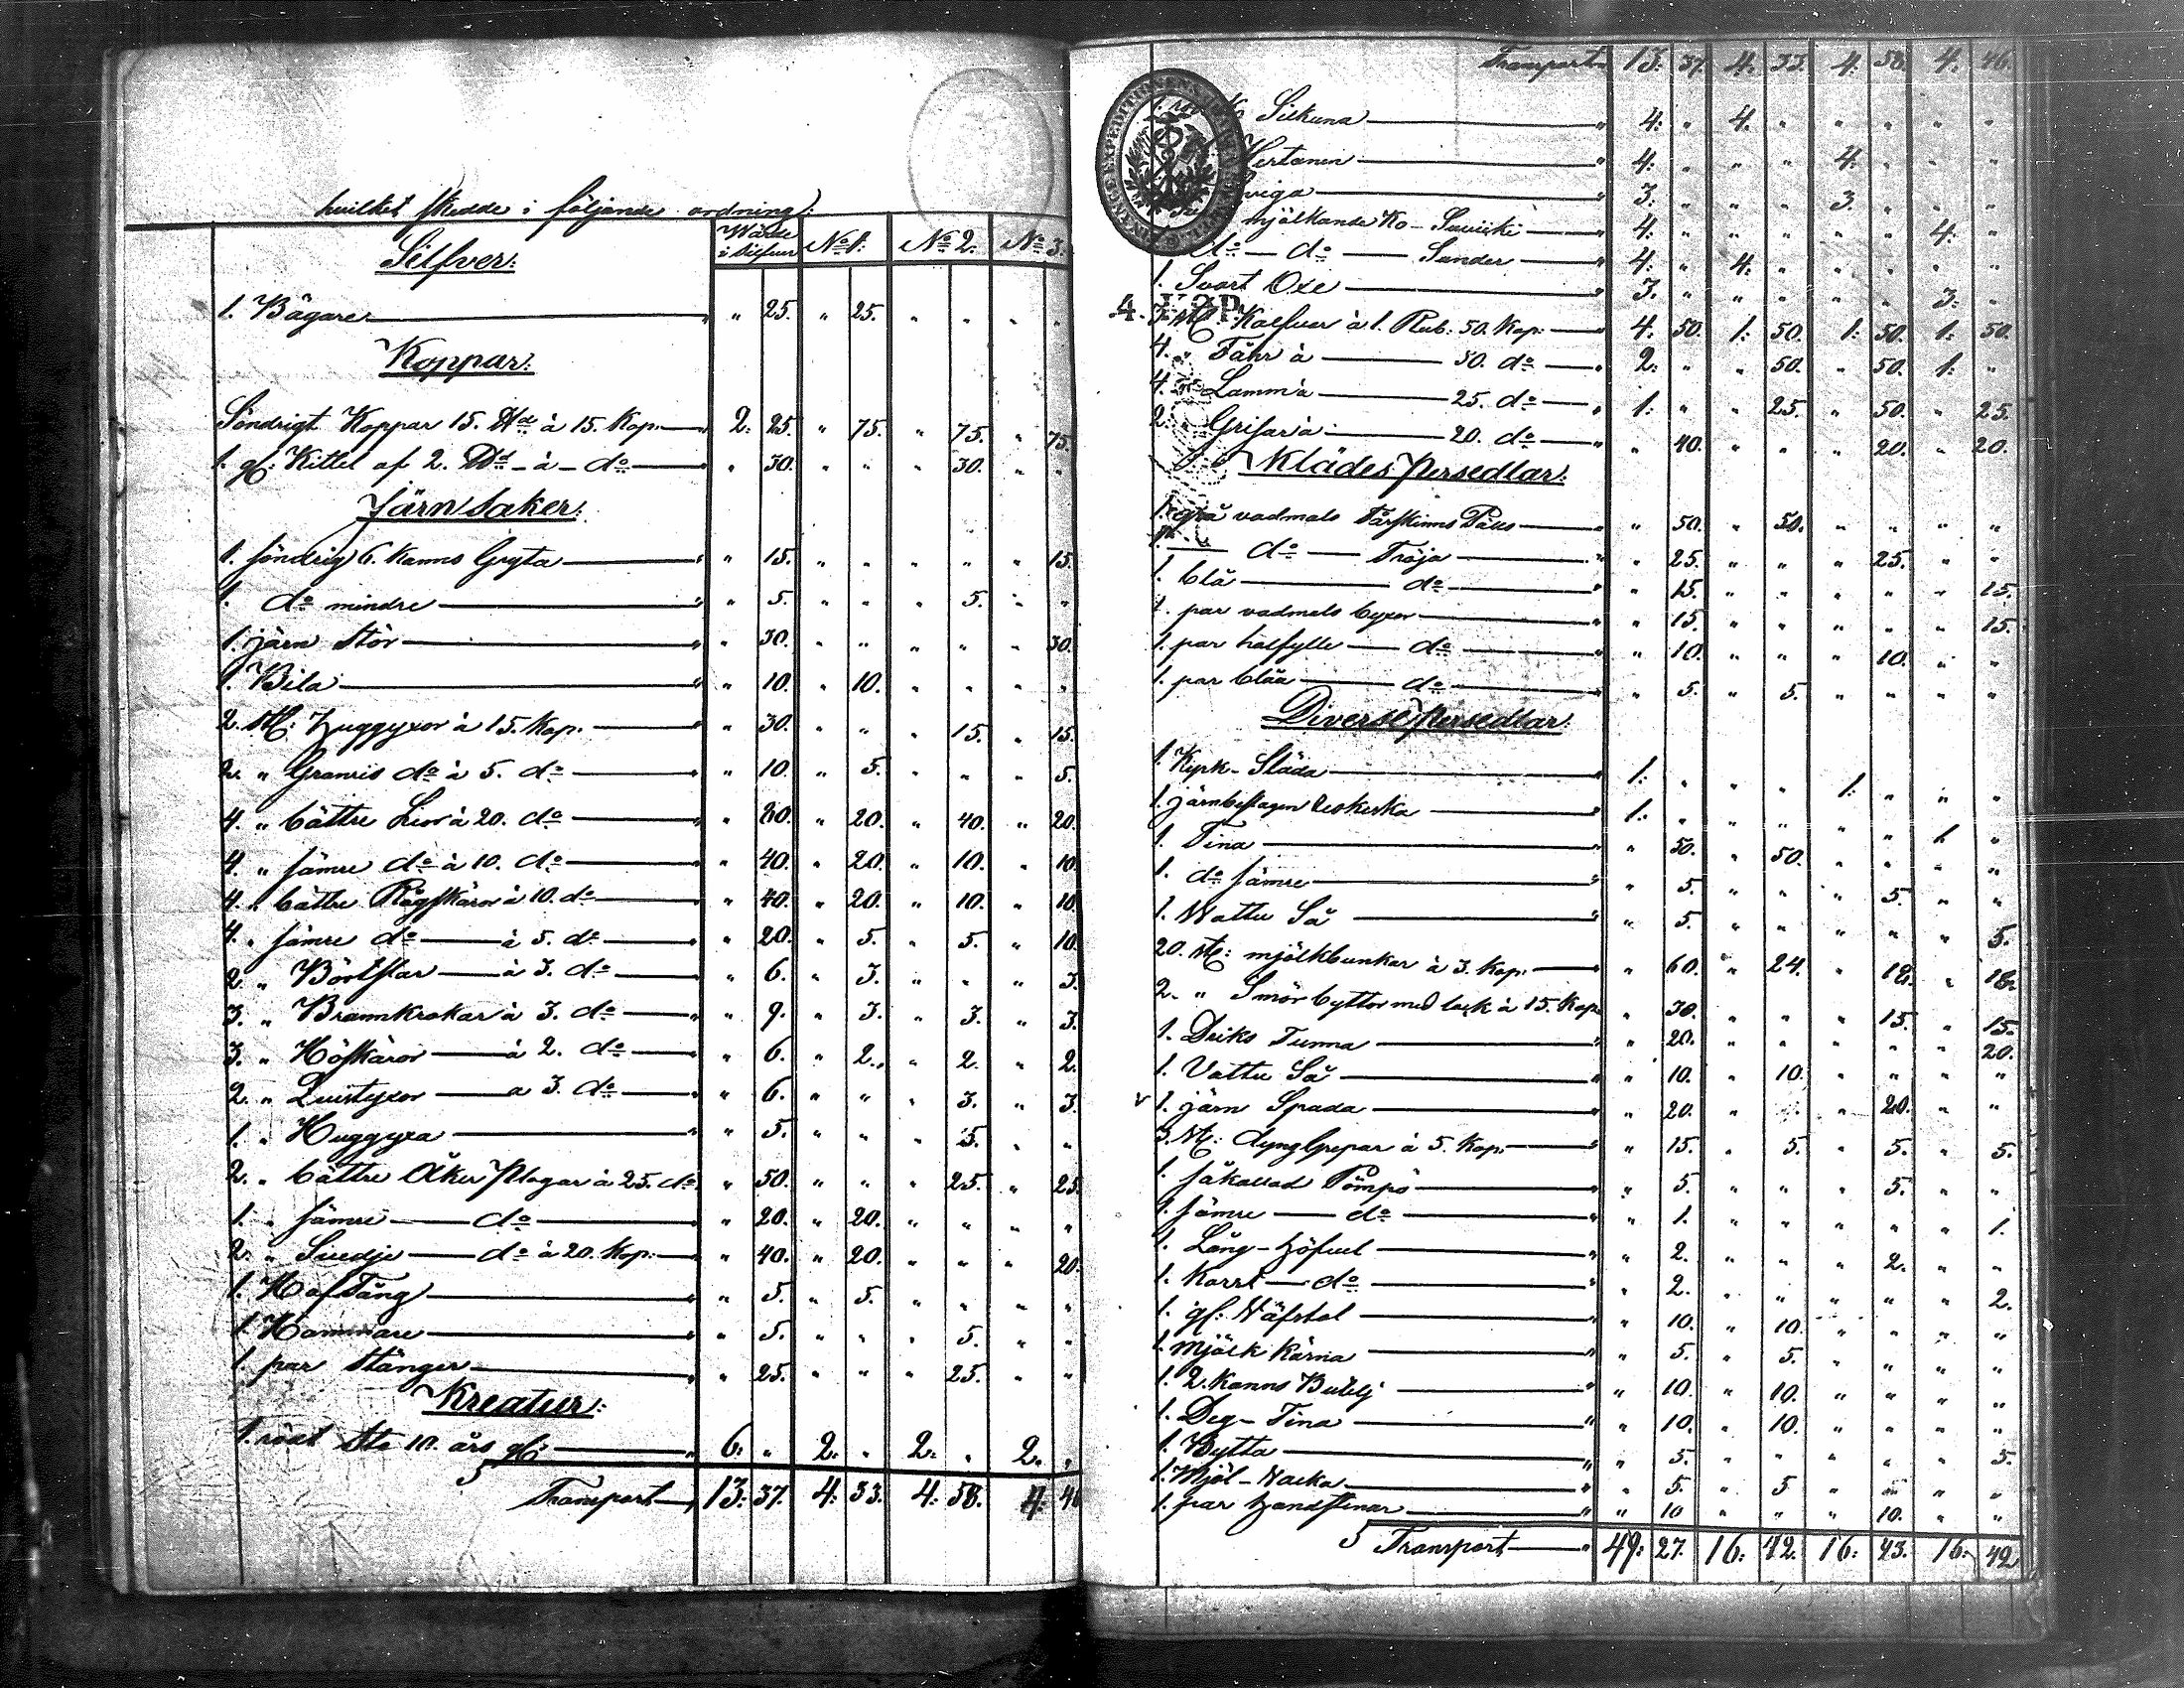 hvilket skedde i följande ordning:
Wärde i Silfver No 1. No 2. No 3.
Silfver:
1. Bägare " 25. " 25. " " " "
Koppar:
Söndrigt Koppar 15. ℔d à 15. Kop. 2: 25. " 75. " 75. " 75.
1. gl: Kittel af 2. ℔d - à - do " 30. " " " 30. " "
Järnsaker:
1. söndrig 6. Kanns Gryta " 15. " " " " " 15.
1. do mindre " 5. " " " 5. " "
1. järn Stör " 30. " " " " " 30.
1. Bila " 10. " 10. " " " "
2. St: Huggyxor à 15. Kop. " 30. " " " 15. " 15.
2. " Granris do à 5. do " 10. " 5. " " " 5.
4. " bättre Lior à 20. do " 80. " 20. " 40. " 20.
4. " sämre do à 10. do " 40. " 20. " 10. " 10.
4. " bättre Rågskäror à 10. do " 40. " 20. " 10. " 10
4. " sämre do à 5. do " 20. " 5. " 5. " 10.
2. " à 3. do " 6. " 3. " " " 3.
3. " Brannkrokar à 3. do " 9. " 3. " 3. " 3.
3. " Höskäror à 2. do " 6. " 2. " 2. " 2.
2. " Quistyxor a 3. do " 6. " " " 3. " 3.
1. " Huggyxa " 5. " " " 5. " "
2. " bättre Åker Plogar à 25. do " 50. " " " 25. " 25.
1. " sämre do " 20. " 20. " " " "
2. " Svedje do à 20. Kop. " 40. " 20. " " " 20.
1. HofTång " 5. " 5. " " " "
1. Hammare " 5. " " " 5. " "
1. par Stänger " 25. " " " 25. " "
Kreatur:
1. rödt Sto 10. års gl: 6: " 2. " 2. " 2. "
Transport 13: 37. 4: 33. 4: 58. 4: 46
Transport 13: 37. 4: 33. 4: 58. 4: 46.
Silkuna 4: " 4. " " " " "
Hertanen 4: " " " 4. " " "
3. " " " 3. " " "
mjölkande Ko - 4: " " " " " 4. "
do - do Sunder 4: " 4. " " " " "
1. Svart Oxe 3. " " " " " 3. "
3. St: Kalfvar à 1. Rub: 50. Kop: 4: 50. 1: 50. 1: 50. 1: 50.
4. " Fåhr à 50. do 2: " " 50. " 50. 1: "
4. Lamm à 25. do 1: " " 25. " 50. " 25.
2. Grisar à 20. do " 40. " " " 20. " 20.
Klädes Persedlar:
1. grå vadmals Fårskinns Päls " 50. " 50. " " " "
1. do Tröja " 25. " " " 25. " "
1. blå do " 15. " " " " " 15.
1. par vadmals byxor " 15. " " " " " 15.
1. par halfylle do " 10. " " " 10. " "
1. par blåa do " 5. " 5. " " " "
Diverse Persedlar:
1. Kyrk-Släda 1: " " " 1: " " "
1. järnbeslagen 1: " " " " " 1. "
1. Tina " 50. " 50. " " " "
1. do sämre " 5. " " " 5. " "
1. Wattu Så " 5. " " " " " 5.
20. St: mjölkbunkar à 3. Kop. " 60. " 24. " 18. " 18.
2. " Smörbyttor med lock à 15. Kop. " 30. " " " 15. " 15.
1. Driks Tunna " 20. " " " " " 20.
1. Vattu Så " 10. " 10. " " " "
v 1. järn Spada " 20. " " " 20. " "
3. St: dyng Grepar à 5. Kop. " 15. " 5. " 5. " 5.
1. såkallad Pömpö " 5. " " " 5. " "
1. sämre do " 1. " " " " " 1.
1. Lång-Höfvel " 2. " " " 2. " "
1. Korrt do " 2. " " " " " 2.
1. gl: Wäfstol " 10. " 10. " " " "
1. Mjölk Kärna " 5. " 5. " " " "
1. 2. Kanns Butelj " 10. " 10. " " " "
1. Deg-Tina " 10. " 10. " " " "
1. Bytta " 5. " " " " " 5.
1. Mjöl-Wacka " 5. " 5 " " " "
1. par handstenar " 10 " " " 10. " "
Transport 49: 27. 16: 42. 16: 43. 16: 42